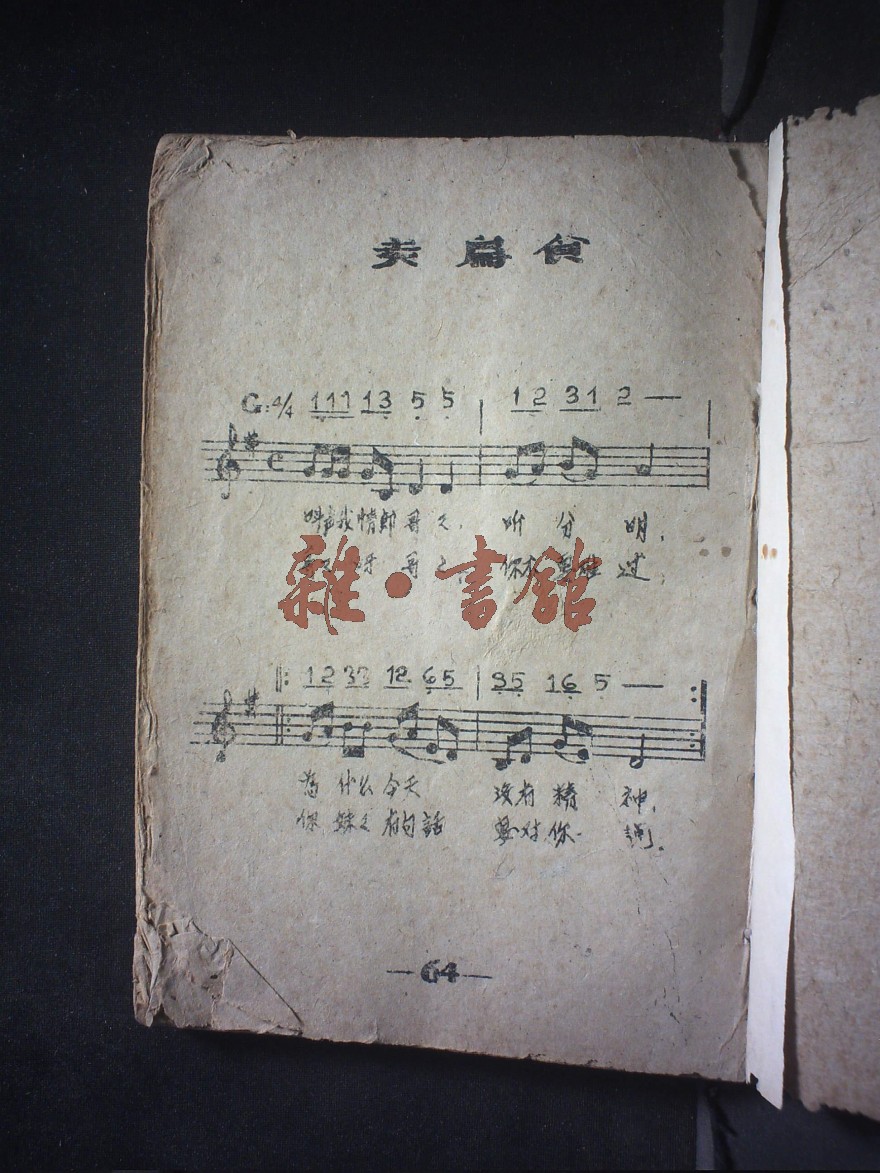 卖扁食
G:4/4 111 13 5 5 | 12 31 2 — |
叫声我情郎哥々，听分明，
哥々呀哥々，你不要难过，
雜·書館
12 33 12 65 | 35 16 5 —
为什么今天 没有精神，
你妹々有句話 要对你 講。
—64—